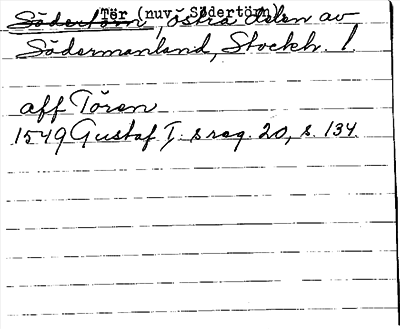 Tör (nuv. Södertörn)
Södertörn, östra delen av
Södermanland, Stockh. l
aff Tören
1549 Gustaf I:s reg. 20, s. 134.